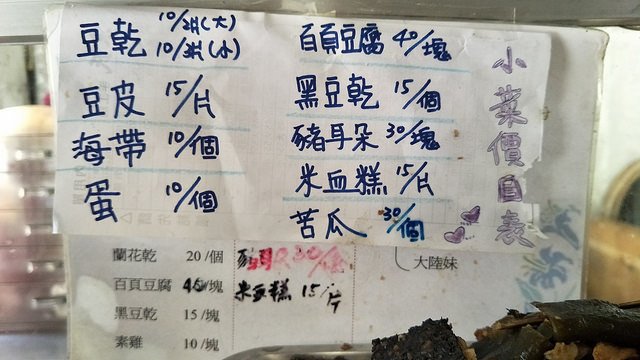 小菜價目表
豆乾 10/2片(大)
10/3片(小)
豆皮 15/片
海帶 10/個
蛋 10/個
百頁豆腐 40/塊
黑豆乾 15/個
豬耳朵 30/塊
米血糕 15/片
苦瓜 30/個
蘭花乾 20/個
百頁豆腐 40/塊
黑豆乾 15/塊
素雞 10/塊
米血糕 15/片
大陸妹